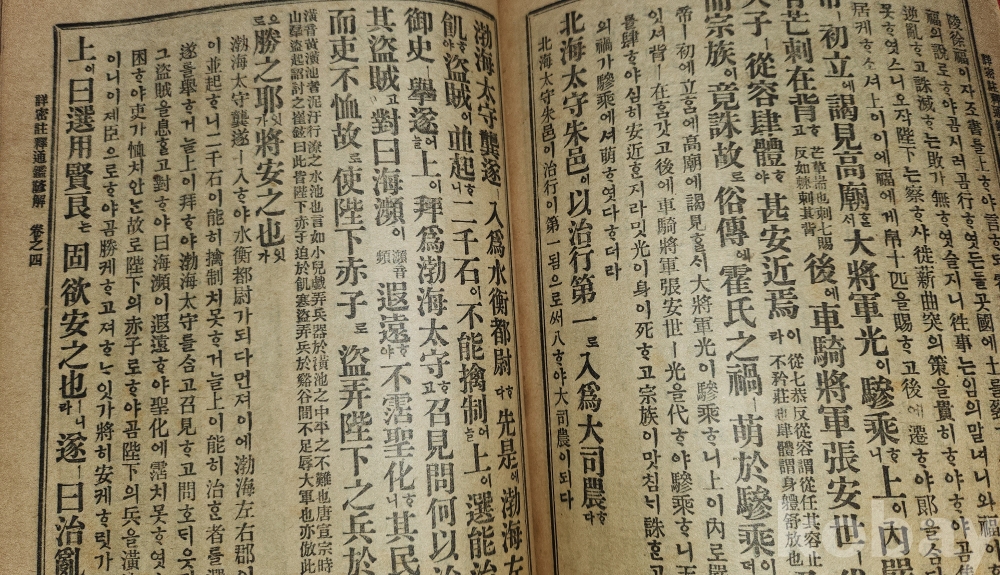 詳密註釋
福의說로ᄒᆞ야곰시러곰行ᄒᆞ엿든들國에
逆亂ᄒᆞ고誅滅ᄒᆞᄂᆞᆫ敗가無ᄒᆞ엿슬지니徃事ᄂᆞᆫ임의말녀니와福이
못ᄒᆞ엿스니오작陛下ᄂᆞᆫ察ᄒᆞ사徙薪曲突의策을貴히ᄒᆞ야
居케ᄒᆞ소셔上이이에福에게帛十匹을賜ᄒᆞ고後에遷ᄒᆞ야郞을삼
初立에謁見高廟ᄒᆞᆯᄉᆡ大將軍光이驂乘ᄒᆞ니上이內嚴
芒刺在背ᄒᆞ고 芒草耑也刺七賜反如棘刺其背 後에車騎將軍張安世ㅣ代
天子ㅣ從容肆體ᄒᆞ야甚安近焉이라 從七恭反從容謂從任其容止不矜莊也肆體謂身體舒放也
而宗族이竟誅故로俗傳에霍氏之禍ㅣ萌於驂乘이
帝ㅣ初立ᄒᆞᆷ에高廟에謁見ᄒᆞᆯᄉᆡ大將軍光이驂乘ᄒᆞ니上이內로嚴
잇셔背ㅣ在ᄒᆞᆷ갓고後에車騎將軍張安世ㅣ光을代ᄒᆞ야驂乘ᄒᆞ니天
를肆ᄒᆞ야심히安近ᄒᆞ지라밋光이身이死ᄒᆞ고宗族이맛침ᄂᆡ誅ᄒᆞᆫ고
의禍가驂乘에셔萌ᄒᆞ엿다ᄒᆞ더라
北海太守朱邑이以治行第一로入爲大司農ᄒᆞ다
北海太守朱邑이治行이第一됨으로써入ᄒᆞ야大司農이되다
渤海太守龔遂ㅣ入爲水衡都尉ᄒᆞ다先是에渤海左
飢ᄒᆞ야盜賊이並起ᄒᆞ니二千石이不能擒制어ᄂᆞᆯ上이選能治
御史ㅣ擧遂어ᄂᆞᆯ上이拜爲渤海太守ᄒᆞ고召見問何以治
其盜賊고對曰海瀕이 瀕音頻 遐遠ᄒᆞ야不霑聖化ᄒᆞ니其民
而吏不恤故로使陛下赤子로盜弄陛下之兵於
潢音黃潢池者泥汙行潦之水池也言如小兒戲弄兵器於潢池之中平之不難也唐宣宗時
山群盜起詔討之崔鉉曰此皆陛下赤子迫於飢寒盜弄兵於谿谷間不足辱大軍也亦倣此
으로勝之耶잇가將安之也잇가
渤海太守龔遂ㅣ入ᄒᆞ야水衡都尉가되다먼져이에渤海左右郡이
이並起ᄒᆞ니二千石이能히擒制치못ᄒᆞ거ᄂᆞᆯ上이能히治ᄒᆞᆯ者를選
遂를擧ᄒᆞ거ᄂᆞᆯ上이拜ᄒᆞ야渤海太守를삼고召見ᄒᆞ고問ᄒᆞ되엇지
그盜賊을息ᄒᆞᆯ고對ᄒᆞ야曰海瀕이遐遠ᄒᆞ야聖化에霑치못ᄒᆞ엿
困ᄒᆞ야吏가恤치안ᄂᆞᆫ故로陛下의赤子로ᄒᆞ야곰陛下의兵을潢
이니이졔臣으로ᄒᆞ야곰勝케ᄒᆞ고져ᄒᆞᄂᆞᆫ잇가將ᄎᆞ安케ᄒᆞ릿가
上이曰選用賢良은固欲安之也ㅣ니라遂ㅣ曰治亂
詳密註釋通鑑諺解 卷之四